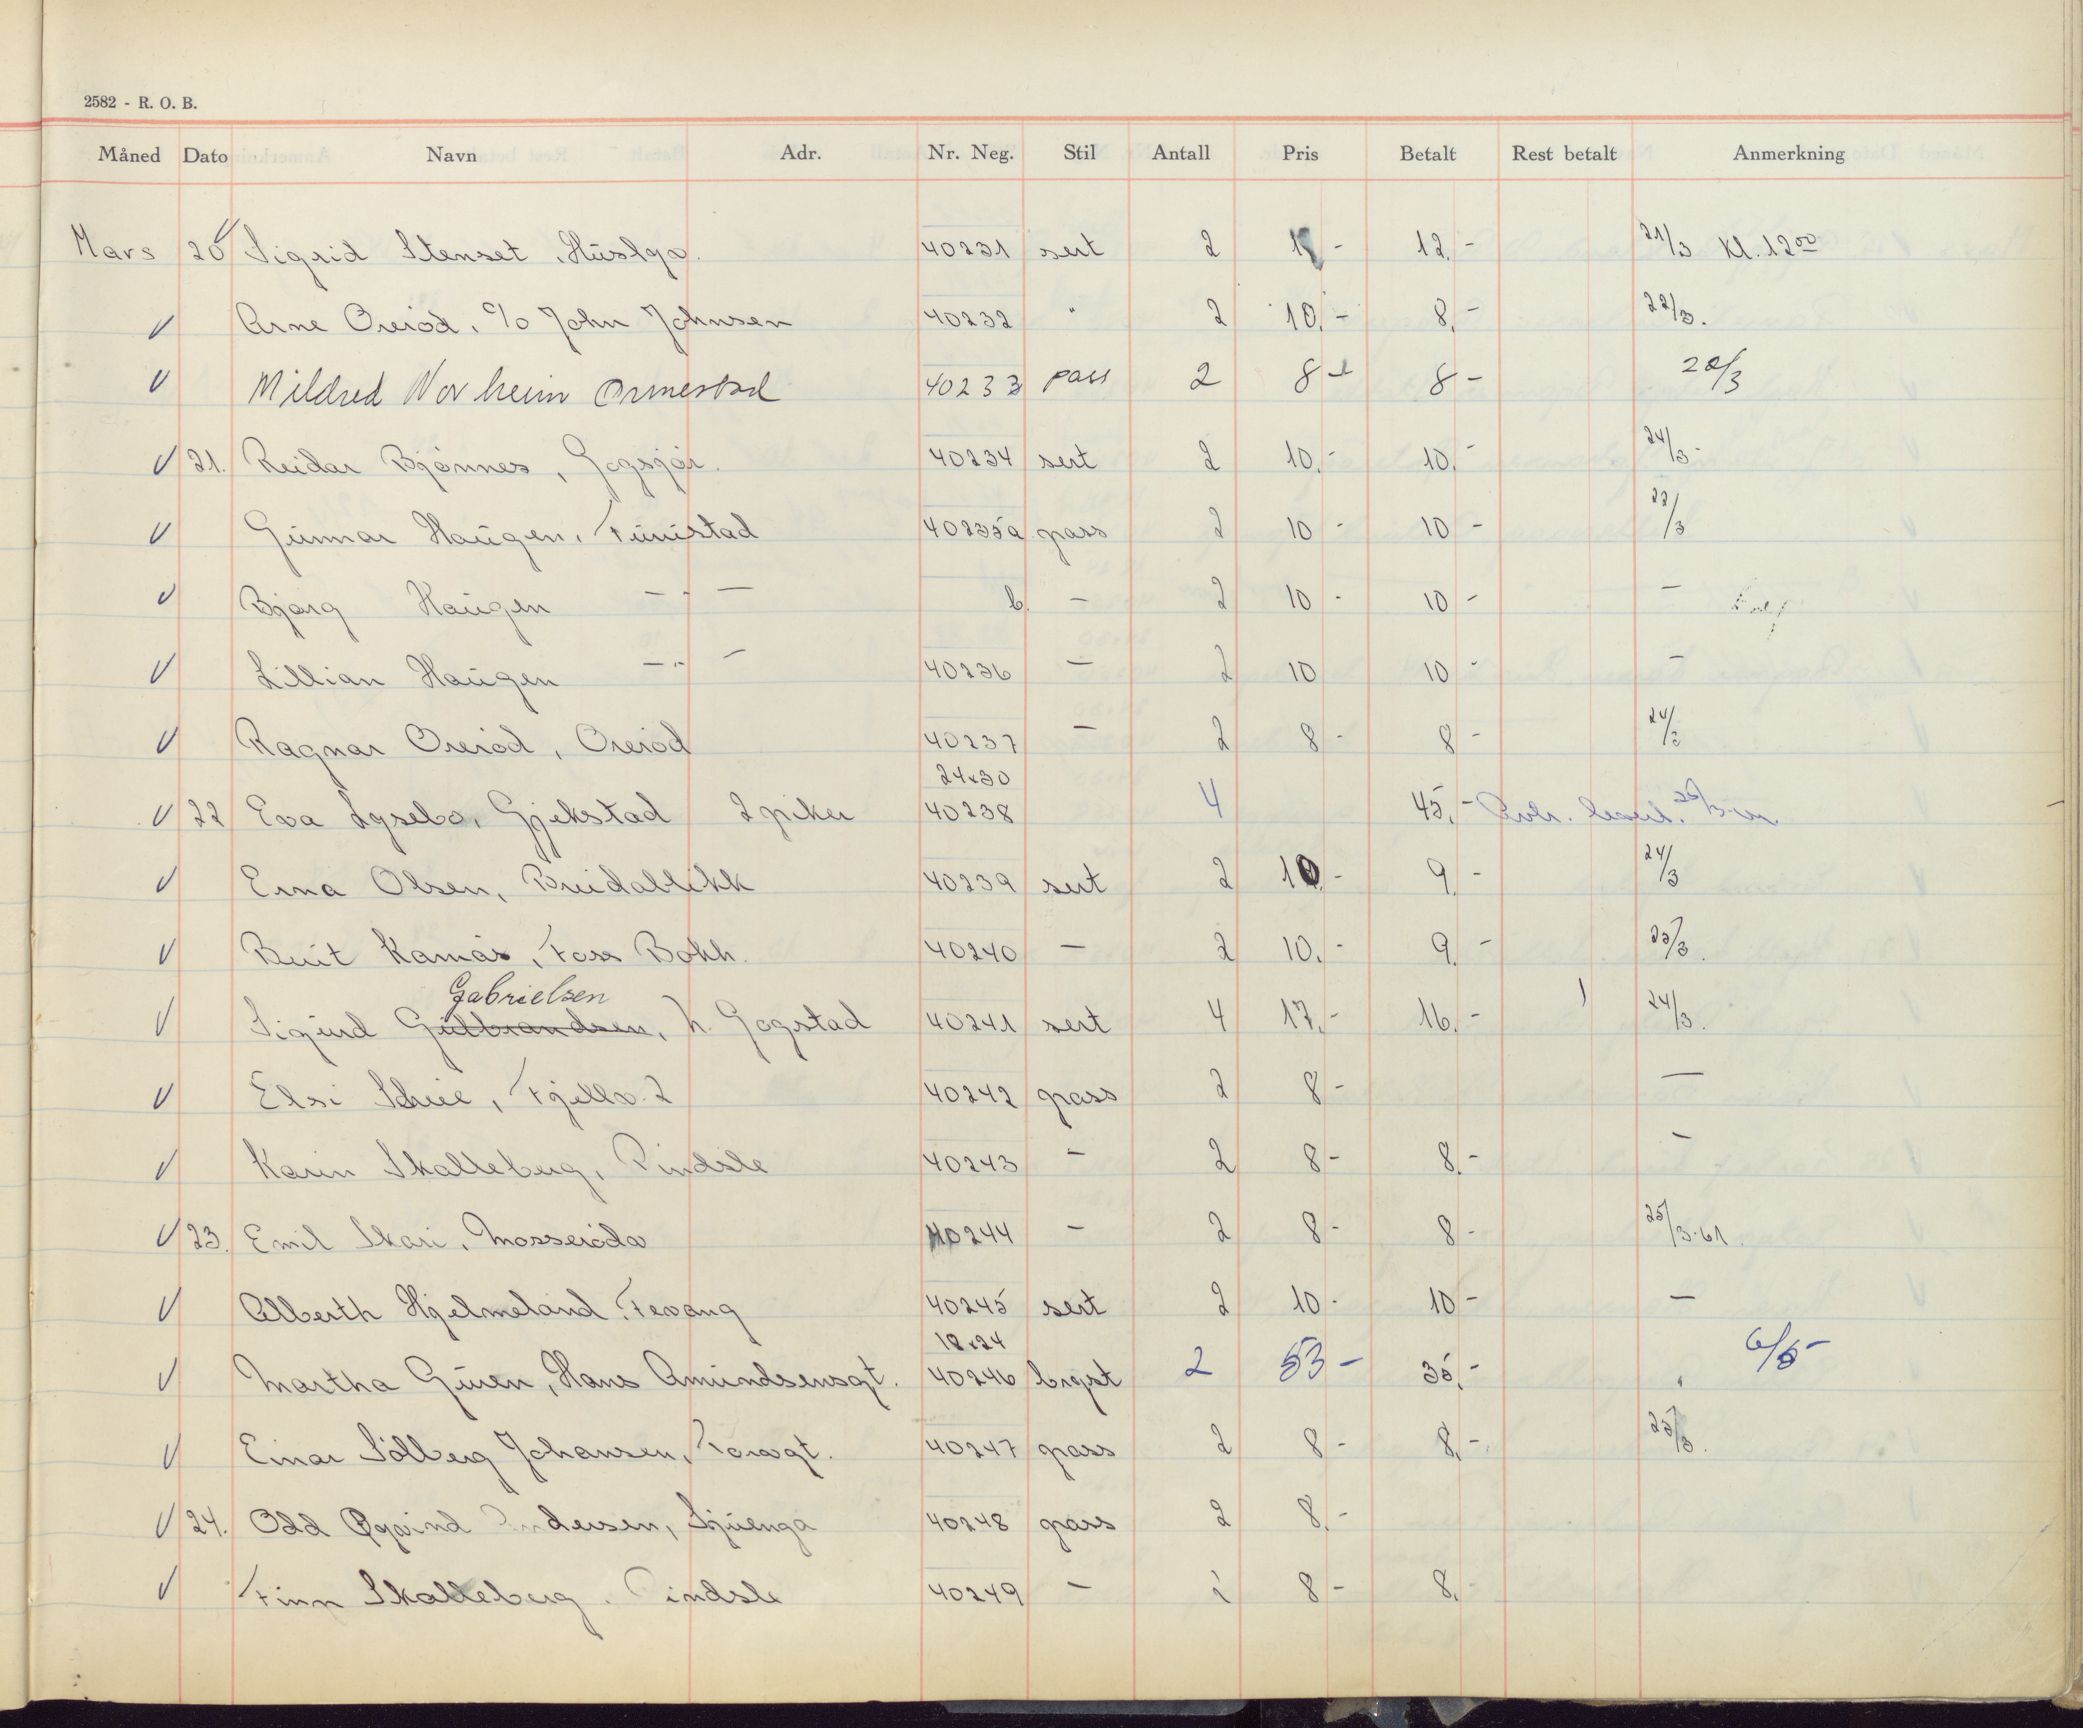 2582 - R. O. B.
Måned Dato Navn Adr. Nr. Neg. Stil Antall Pris Betalt Rest betalt Anmerkning
Mars 20 Sigrid Stenset, 40231 sert 2 12,- 21/3 Kl. 12 00
Arne Overød, c/o John Johnsen 40232 " 2 10,- 8,- 22/3.
Mildred Norheim Ormestad 40233 pass 2 8- 8-
21. Reidar Bjønnes, 40234 sert 2 10,- 10,- 24/3-
Gunnar Haugen, Furustad 40235a pass 2 10 - 10 - 22/3
Bjørg Haugen -"- b. — 2 10 - 10 - —
Lillian Haugen -"- 40236 — 2 10 10 - —
Ragnar Overød, Overød 40237 — 2 8 - 8 -
24x30
22 Eva Lysebo, Gjekstad 2 piker 40238 4 45,-
Erna Olsen, Breidablikk 40239 sert 2 10,- 9,- 24/3
Berit Kamås, Foss Bokh. 40240 — 2 10,- 9,- 25/3.
Gabrielsen
Sigurd Gulbrandsen, h. Gogstad 40241 sert 4 17,- 16,- 24/3.
Elsi, Fjellv. 2 40242 pass 2 8- —
Karin Skalleberg, Pindsle 40243 — 2 8- 8,- —
23. Emil Skari, Mosserødv 40244 — 2 8- 8- 25/3-61.
Alberth Hjelmeland. Fevang 40245 sert 2 10- 10- —
18x24
Martha, Hans Amundsensgt. 40246 bryst 2 53- 35,- "
Einar Sølberg Johansen, 40247 pass 2 8- 8,- 25/3.
24. Odd Øyvind Andersen, 40248 pass 2 8,-
Finn Skalleberg. Pindsle 40249 — 8- 8,-